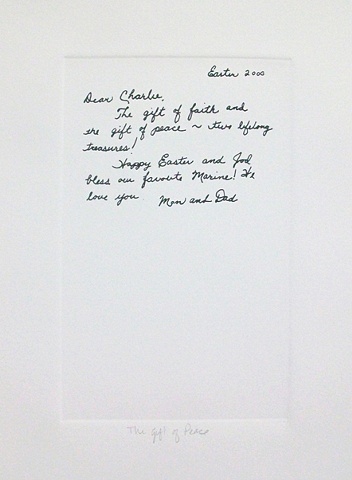 Easter 2000
Dear Charlie,
The gift of faith and
the gift of peace ~ two lifelong
treasures!
Happy Easter and God
bless our favorite Marine! We
love you Mom and Dad
The gift of Peace